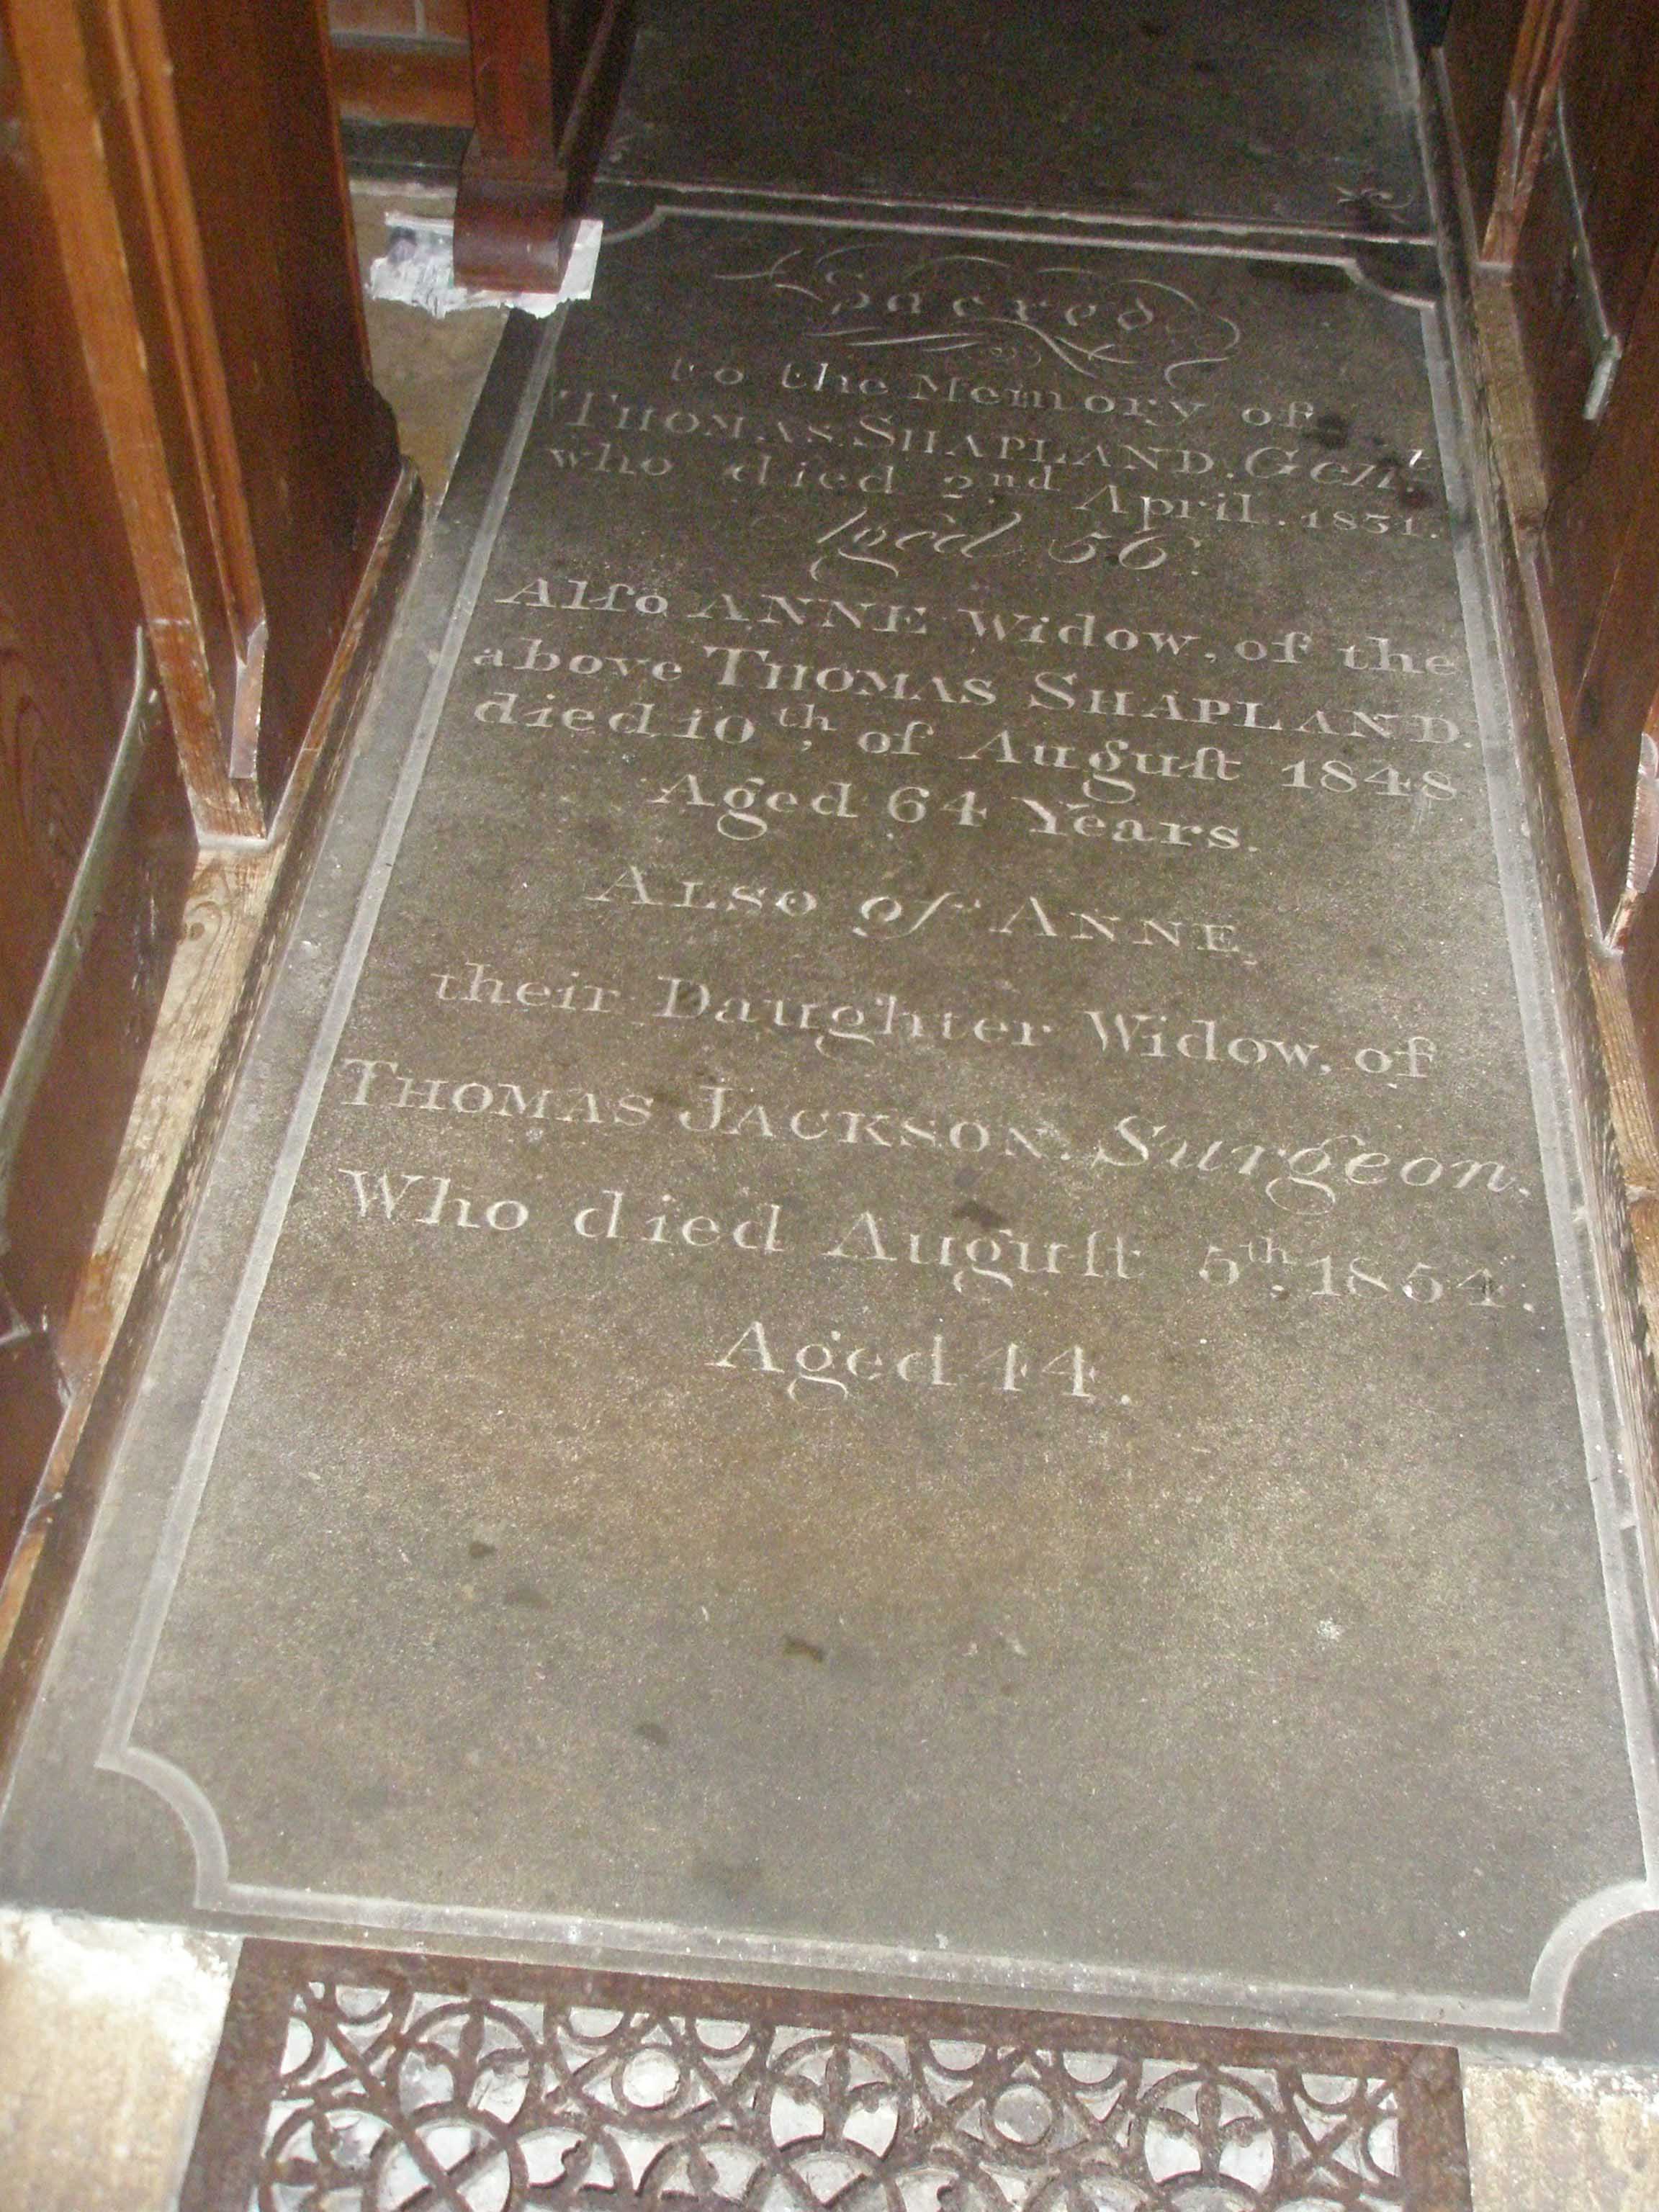 Sacred
to the Memory of
THOMAS SHAPLAND, Gent.
who died 2nd April. 1831.
Aged 56.
Alſo ANNE Widow, of the
above THOMAS SHAPLAND.
died 10th, of Auguſt 1848
Aged 64 Years.
ALSO of ANNE,
their Daughter Widow, of
THOMAS JACKSON. Surgeon.
Who died Auguſt 5th. 1854.
Aged 44.